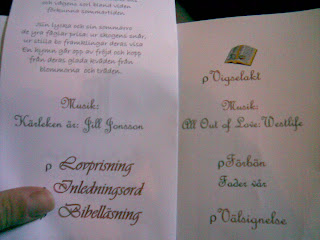 och vägens vol bland viden
förkunna sommartiden.
Sin lycka och sin sommarro
de yra fåglar prisa; ur skogens snår,
ur stilla bo framklingar deras visa.
En hymn går opp av fröjd och hopp
från deras glada kväden från
blommorna och träden.
Musik:
Kärleken är: Jill Jonsson
Lovprisning
Inledningsord
Bibelläsning
Vigselakt
Musik:
All Out of Love: Westlife
Förbön
Fader vår
Välsignelse